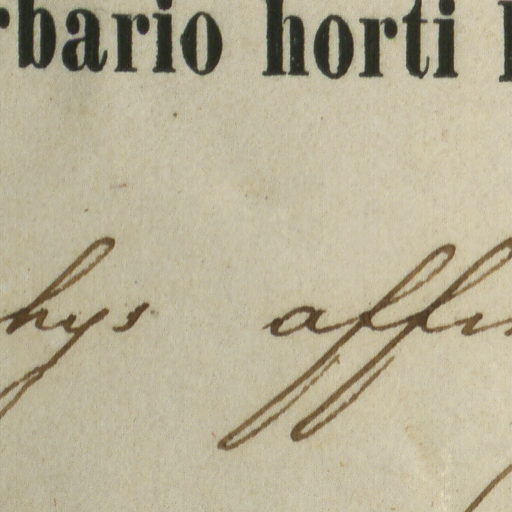 rbario horti
hys affin